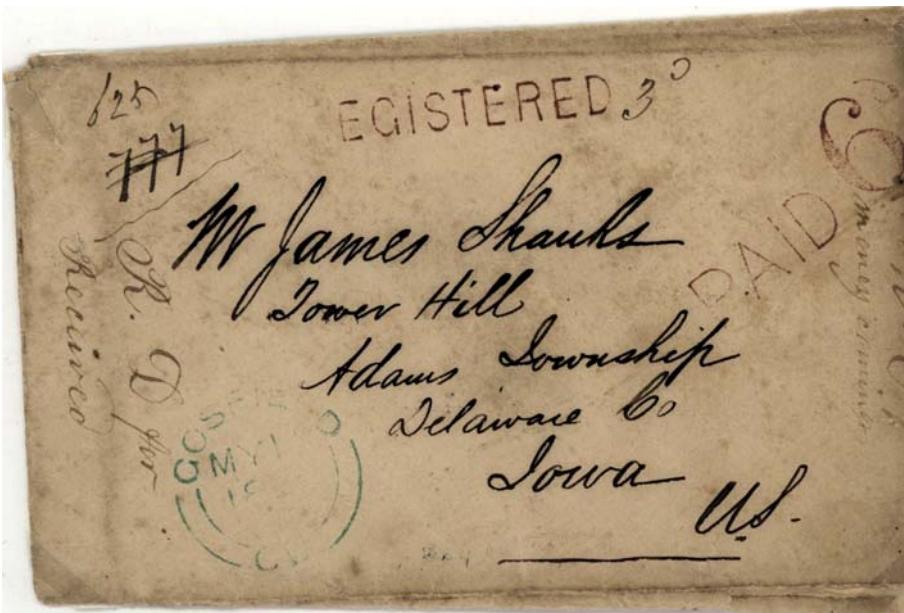 625
777
EGISTERED 3
PAID 6
Mr James Shanks
Tower Hill
Adams Township
Delaware Co
Iowa
US.
R. D for
Received
money
MY